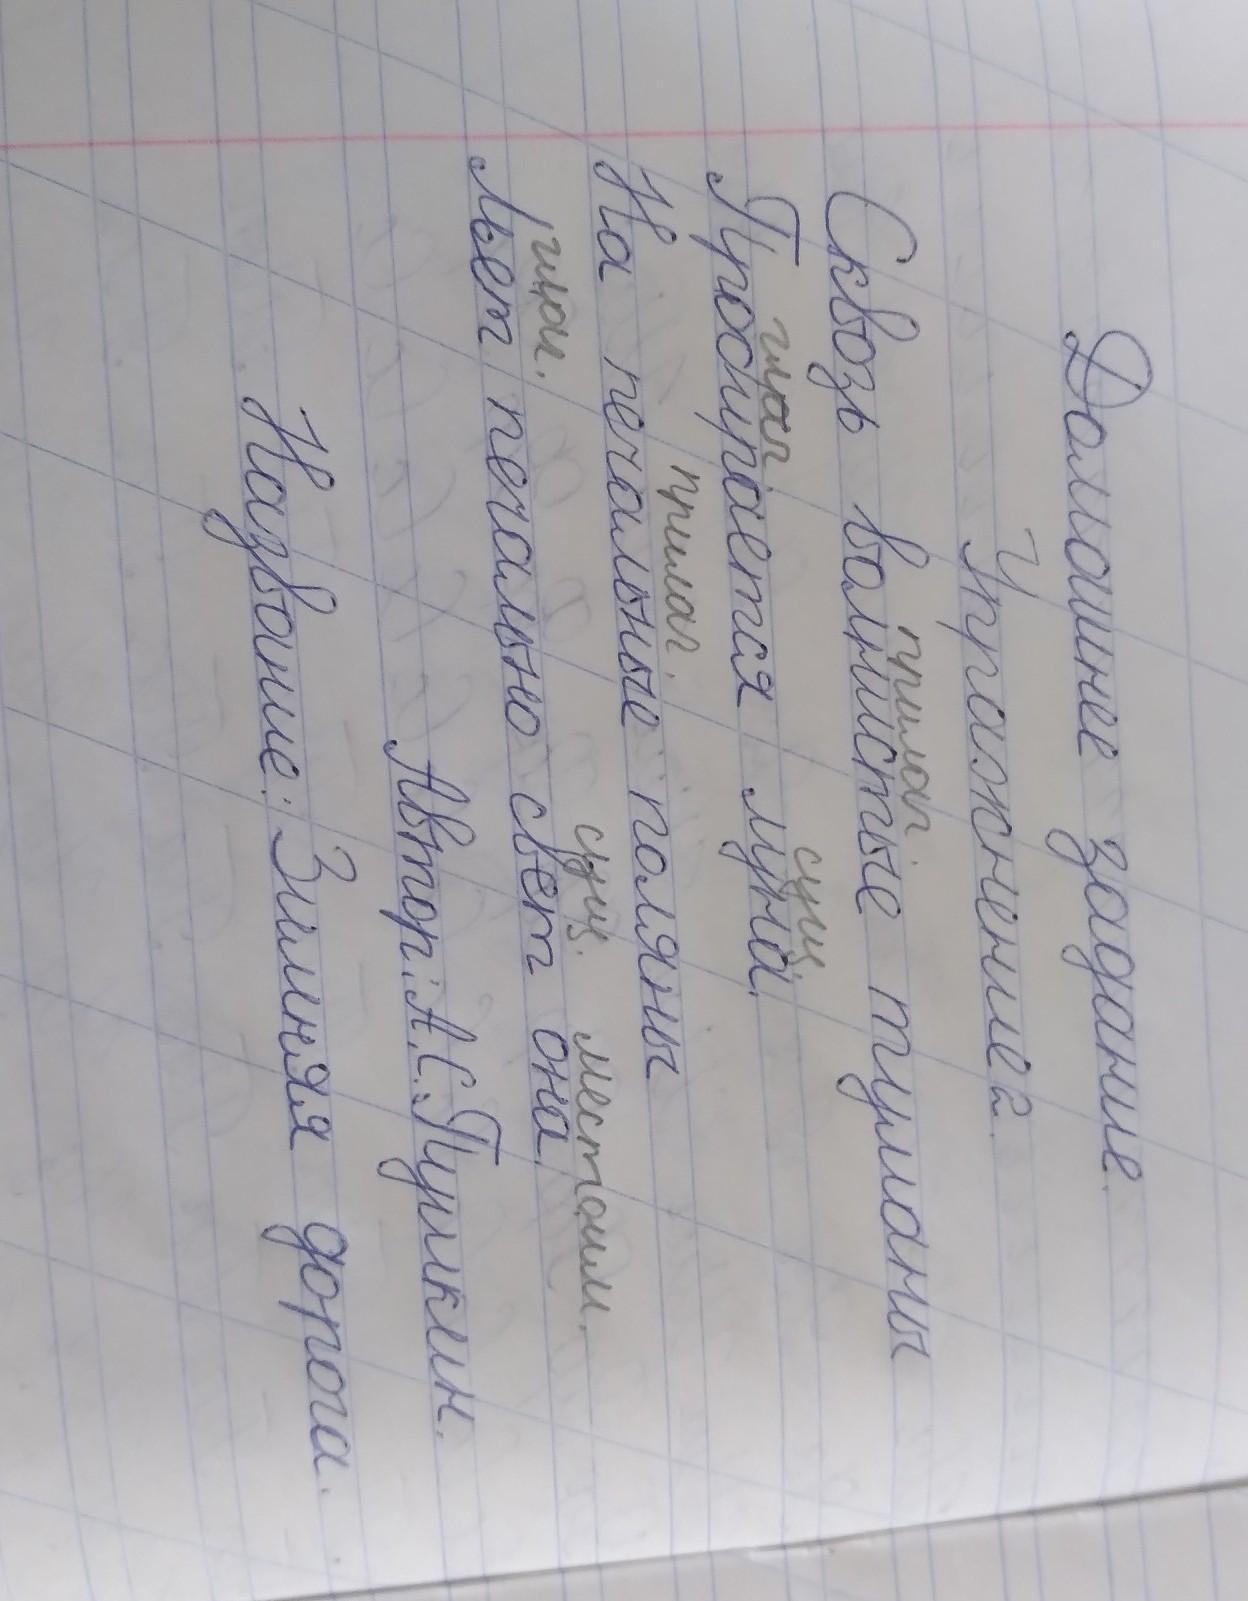 Домашнее задание.
Упражнение 2.
прилаг
Сквозь волнистые туманы
глаг. сущ.
Пробирается луна,
прилаг.
На печальные поляны
глаг. сущ. местоим.
Льет печально свет она.
Автор: А.С.Пушкин.
Название: Зимняя дорога.